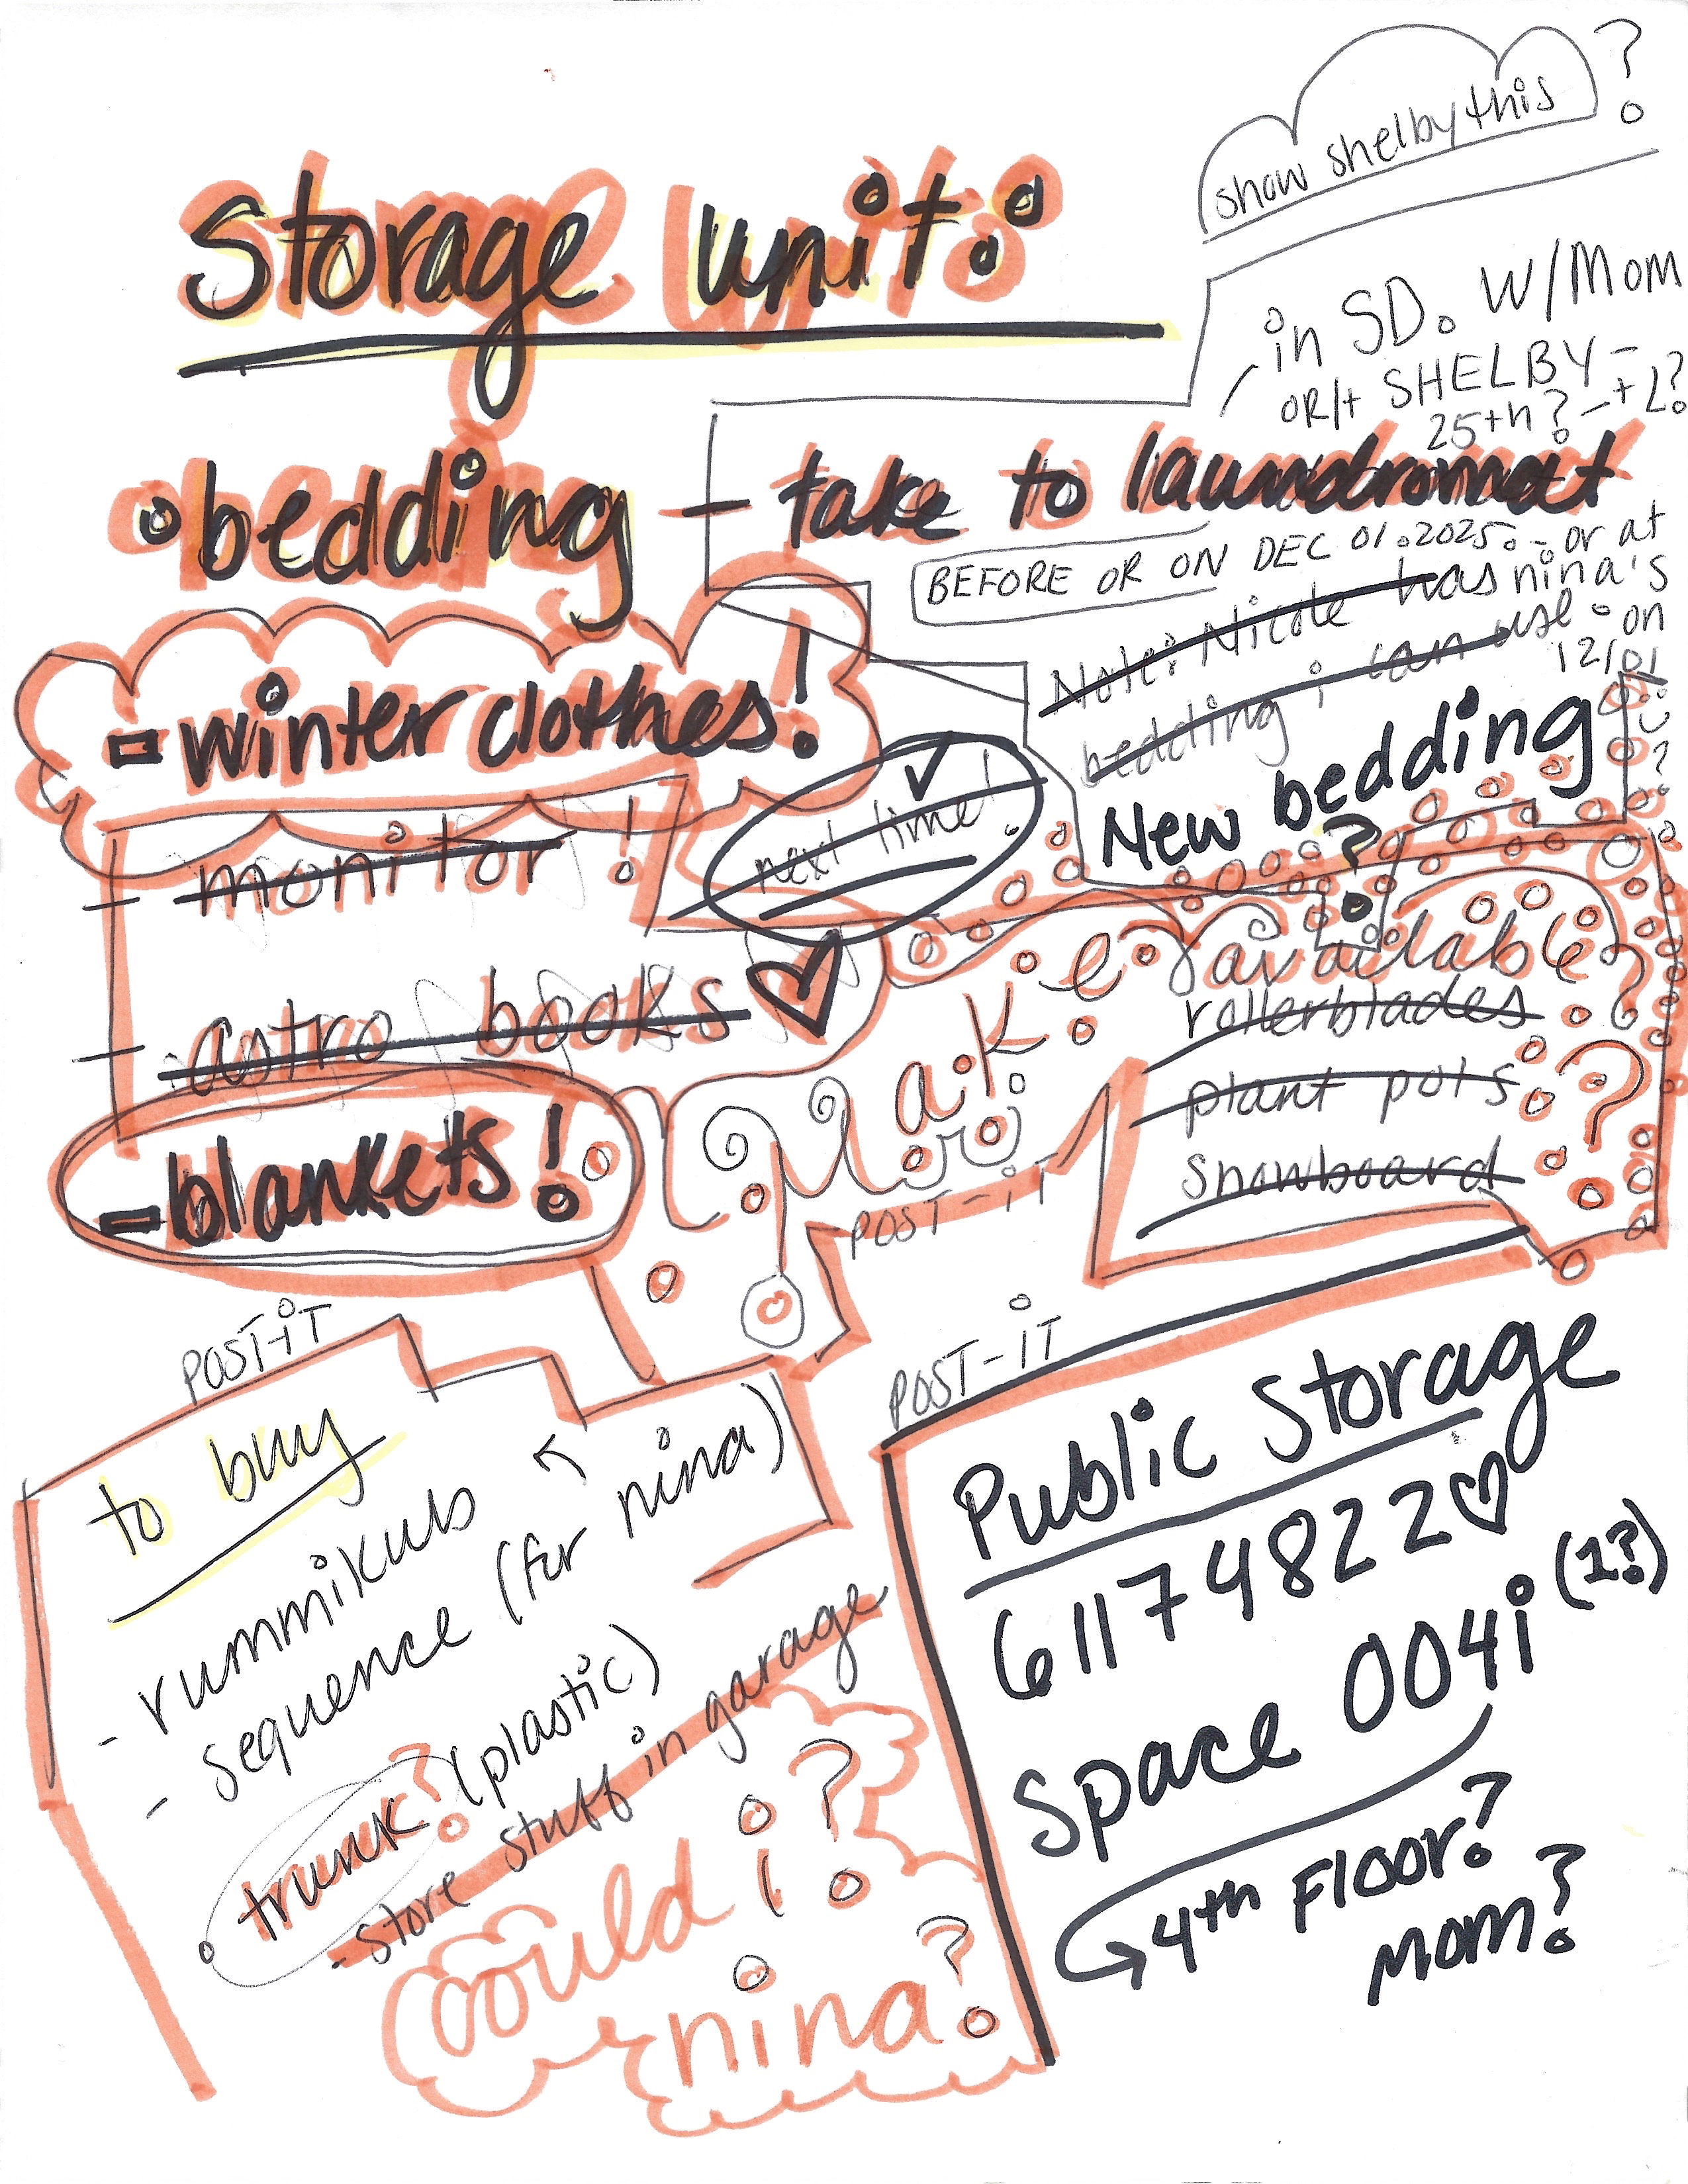 show shelby this ?
Storage unit:
in SD. W/MOM
OR/+ SHELBY -
25th? - + L?
• bedding - take to laundromat
BEFORE OR ON DEC 01.2025. - or at
nina's
on
12/01
Note: Nicole has
bedding i can use.
- winter clothes!
New bedding
?
- monitor !
next time!
- astro books
Make available?
Mor
rollerblades
plant pots
snowboard
?
- blankets!
POST-iT
POST-iT
POST-iT
to buy
- rummikub
- sequence (for nina)
• trunk? (plastic)
- store stuff in garage
could i?
nina?
Public Storage
61174822
Space 004i (1?)
4th FLOOR?
MOM?